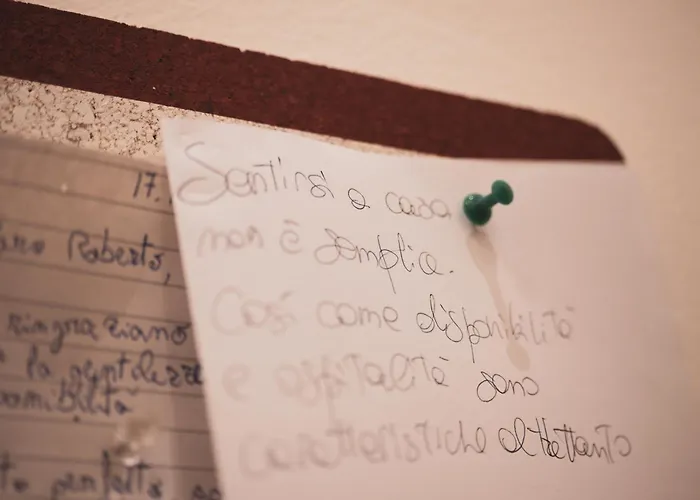 17.
Roberto,
ringraziano
la gentilezza
perfetto
Sentirsi a casa
non è semplice.
Così come disponibilità
e ospitalità sono
caratteristiche altrettanto